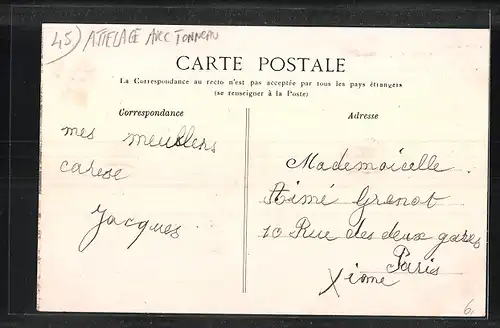 45) ATTELAGE AVEC TONNEAU
CARTE POSTALE
La Correspondance au recto n'est pas acceptée par tous les pays étrangers
(se renseigner à la Poste)
Correspondance
Adresse
mes meullers
carese
Jacques
Mademoiselle
Aimé Grenot
10 Rue des deux gares
Paris
Xieme
6